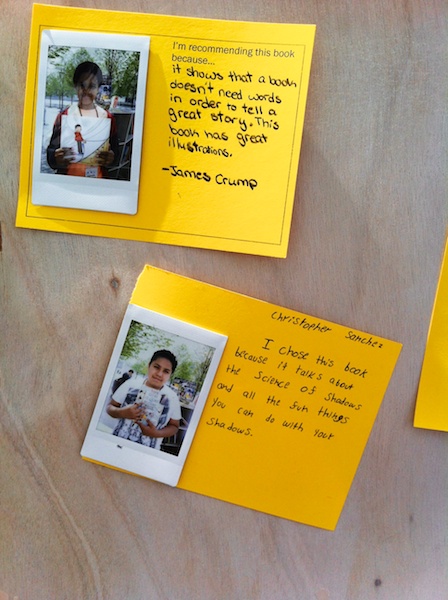 I'm recommending this book
because...
it shows that a book
doesn't need words
in order to tell a
great story. This
book has great
illustrations.
-James Crump
Christopher Sanchez
I chose this book
because it talks about
the Science of Shadows
and all the fun things
you can do with your
Shadows.